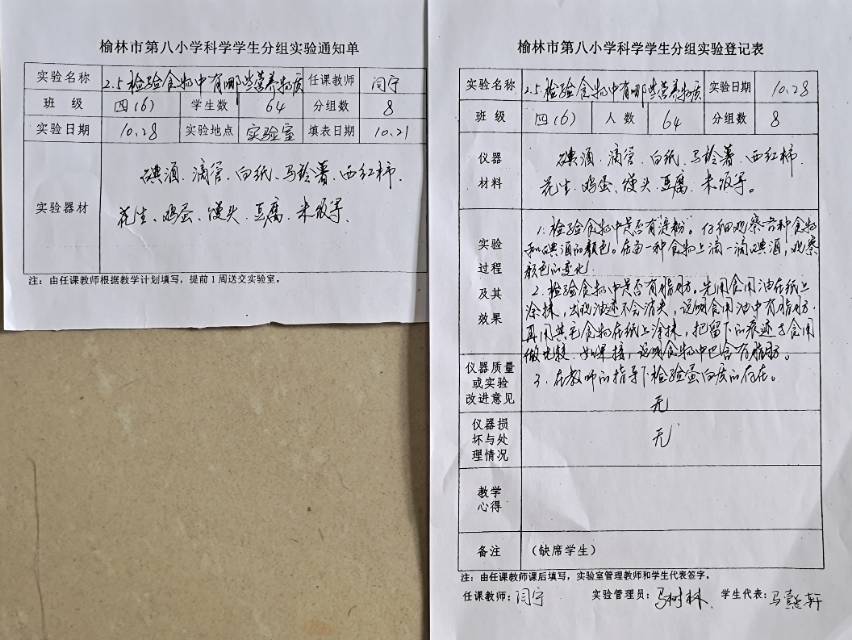 榆林市第八小学科学学生分组实验通知单
实验名称 2.5检验食物中有哪些营养物质 任课教师 闫宁
班 级 四(6) 学生数 64 分组数 8
实验日期 10.28 实验地点 实验室 填表日期 10.21
实验器材
碘酒、滴管、白纸、马铃薯、西红柿、
花生、鸡蛋、馒头、豆腐、米饭等
注：由任课教师根据教学计划填写，提前1周送交实验室。
榆林市第八小学科学学生分组实验登记表
实验名称 2.5检验食物中有哪些营养物质 实验日期 10.28
班 级 四(6) 人 数 64 分组数 8
仪器材料
碘酒、滴管、白纸、马铃薯、西红柿、
花生、鸡蛋、馒头、豆腐、米饭等。
实验过程及其效果
1. 检验食物中是否有淀粉。仔细观察各种食物
和碘酒的颜色。在每一种食物上滴一滴碘酒，观察
颜色的变化
2. 检验食物中是否有脂肪。先用食用油在纸上
涂抹，出现油迹不会消失，说明食用油中有脂肪.
再用其它食物在纸上涂抹，把留下的痕迹与食用
做比较.如果接，说明食物中包含有脂肪。
3. 在教师的指导下检验蛋白质的存在。
仪器质量或实验改进意见 无
仪器损坏与处理情况 无
教学心得
备注 （缺席学生）
注：由任课教师课后填写，实验室管理教师和学生代表签字。
任课教师：闫宁 实验管理员：马树林 学生代表：马 轩